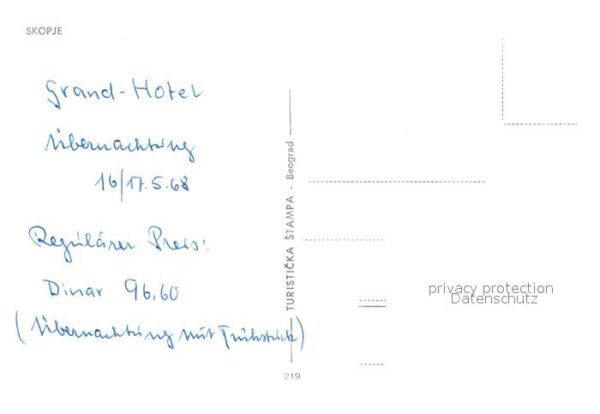 SKOPJE
Grand-Hotel
Übernachtung
16/17.5.68
Regulärer Preis:
Dinar 96,60
(Übernachtung mit Frühstück)
TURISTIČKA ŠTAMPA - Beograd
privacy protection
Datenschutz
219